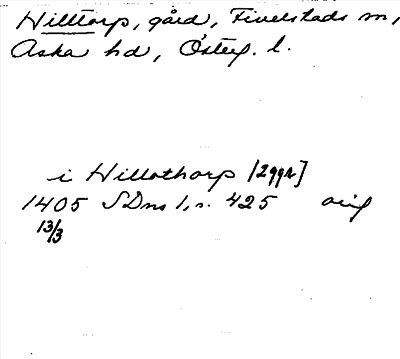 Hilltorp, gård, Fivelstads sn,
Aska hd, Österg. l.
i Hillathorp [2ggr]
1405 SDns 1, s. 425 orig
13/3